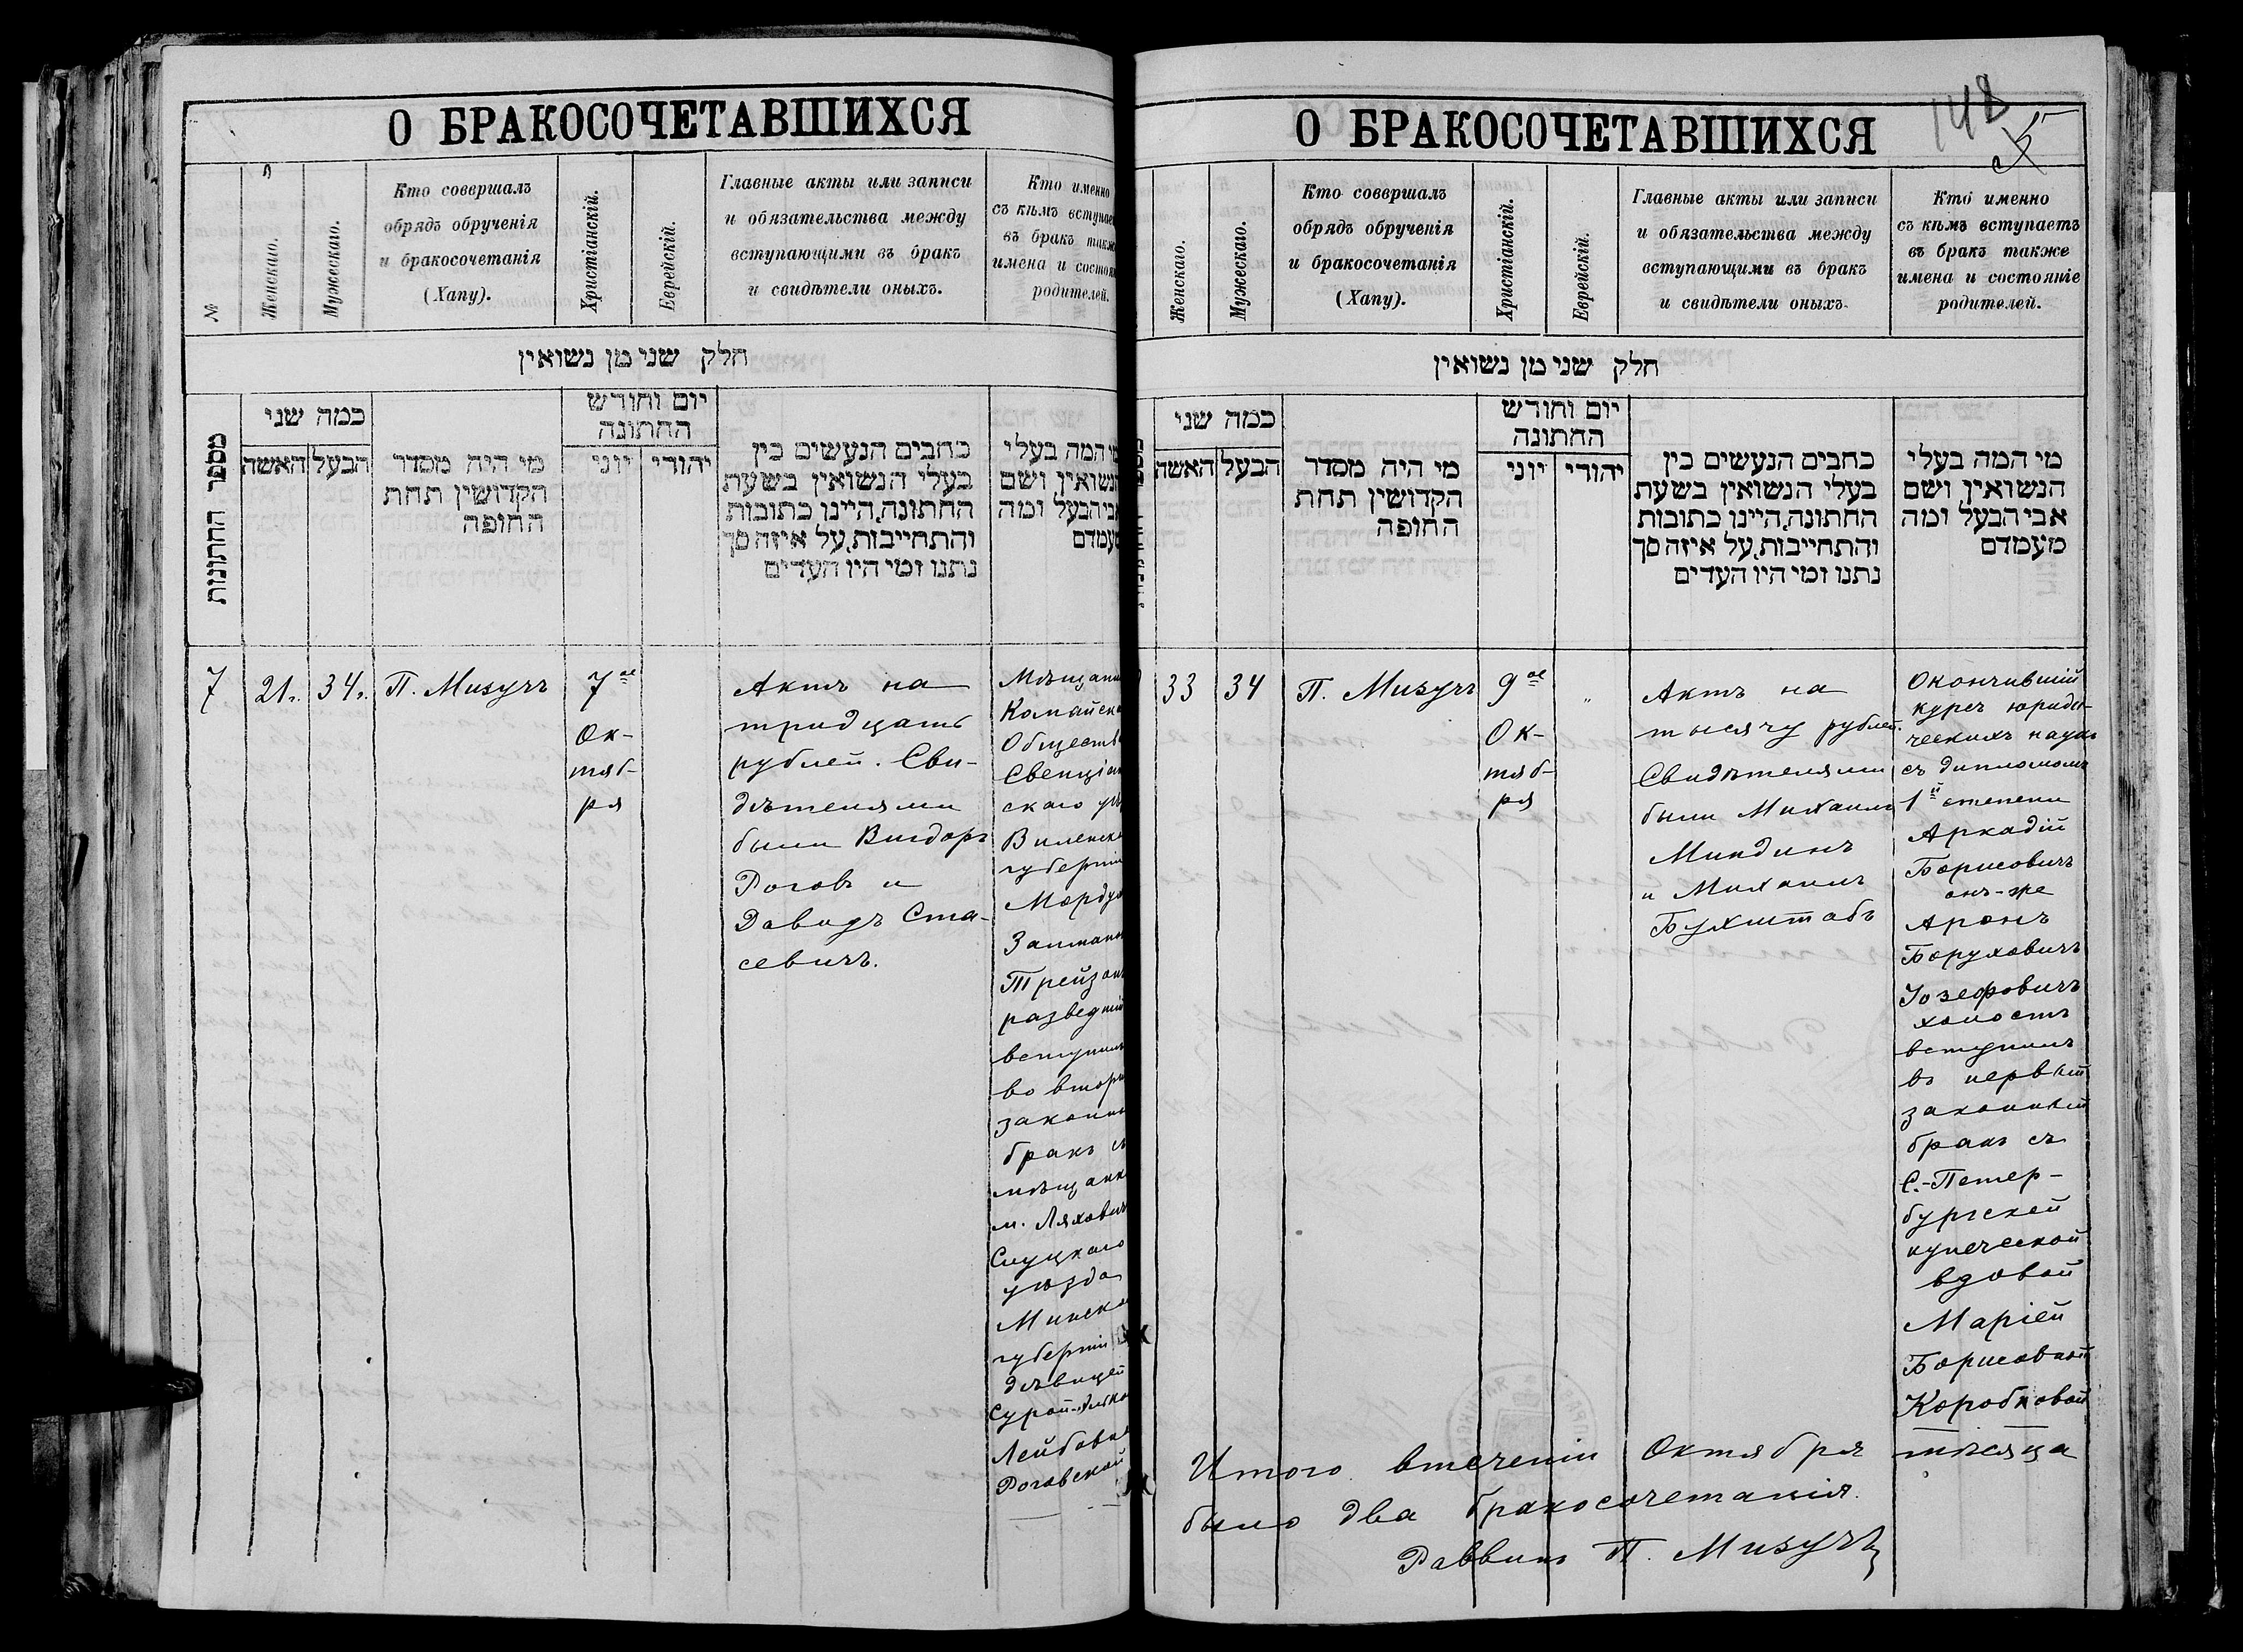 О БРАКОСОЧЕТАВШИХСЯ
№
Женскаго.
Мужескаго.
Кто совершалъ
обрядъ обрученія
и бракосочетанія
(Хапу).
Христіанскій.
Еврейскій.
Главные акты или записи
и обязательства между
вступающими въ бракъ
и свидѣтели оныхъ.
Кто именно
съ кѣмъ вступае
въ бракъ такж
имена и состоя
родителей.
חלק שני מן נשואין
מספר החתונות
כמה שני
האשה
הבעל
מי היה מסדר
הקדושין תחת
החופה
יום וחודש
החתונה
יוני
יהודי
כתבים הנעשים בין
בעלי הנשואין בשעת
החתונה, היינו כתובות
והתחייבות, על איזה סך
נתנו ומי היו העדים
מי המה בעלי
הנשואין ושם
אבי הבעל ומה
מעמדם
7
21.
34.
П. Мизучъ
7ое
Ок-
тяб-
ря
Актъ на
тридцать
рублей. Сви-
дѣтелями
были Вигдоръ
Рогов и
Давидъ Ста-
севичъ.
Мѣщани
Комайска
Обществ
Свенція
скаго уѣ
Виленск
губерніи
Мордух
Залмано
Трейзон
разведній
вступилъ
во втор
законны
бракъ съ
мѣщанк
м. Ляхович
Слуцкаго
уѣзда
Минско
губерніи
дѣвицей
Сурой-
Лейбовн
Роговской
О БРАКОСОЧЕТАВШИХСЯ
148
Женскаго.
Мужескаго.
Кто совершалъ
обрядъ обрученія
и бракосочетанія
(Хапу).
Христіанскій.
Еврейскій.
Главные акты или записи
и обязательства между
вступающими въ бракъ
и свидѣтели оныхъ.
Кто именно
съ кѣмъ вступаетъ
въ бракъ также
имена и состояніе
родителей.
חלק שני מן נשואין
כמה שני
האשה
הבעל
מי היה מסדר
הקדושין תחת
החופה
יום וחודש
החתונה
יוני
יהודי
כתבים הנעשים בין
בעלי הנשואין בשעת
החתונה, היינו כתובות
והתחייבות, על איזה סך
נתנו ומי היו העדים
מי המה בעלי
הנשואין ושם
אבי הבעל ומה
מעמדם
33
34
П. Мизучъ
9ое
Ок-
тяб-
ря
"
Актъ на
тысячу рублей.
Свидѣтелями
были Михаилъ
Миндинъ
и Михаилъ
Бухштабъ
Окончившій
курсъ юриди-
ческихъ наукъ
съ дипломомъ
1й степени
Аркадій
Борисовичъ
онъ-же
Аронъ
Боруховичъ
Іозефовичъ
холостъ
вступилъ
въ первый
законный
бракъ съ
С.-Петер-
бургской
купеческой
вдовой
Маріей
Борисовной
Коробковой
Итого втеченіи Октября мѣсяца
было два бракосочетанія.
Раввинъ П. Мизучъ